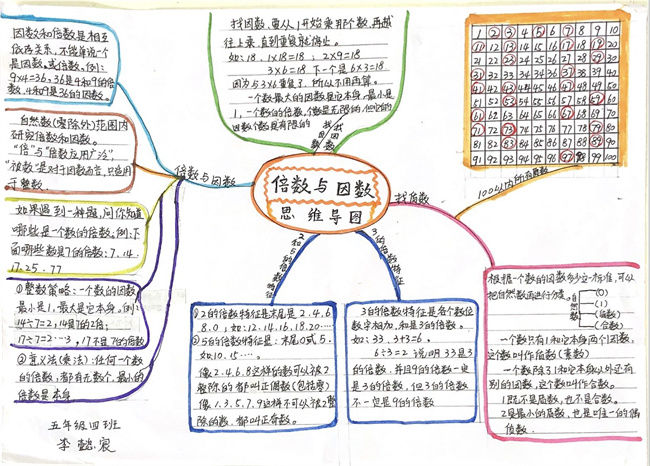 因数和倍数是相互
依存关系,不能单说一个
是因数。或倍数。例:
9×4=36,36是4和9的倍
数,4和9是36的因数。
自然数(零除外)范围内
研究倍数和因数。
"倍"与"倍数应用广泛",
"被数"是对于因数而言,只适用
于整数.
如果遇到一种题,问你知道
哪些是一个数的倍数,例:下
面哪些数是7的倍数:7、14、
17、25、77
①整数策略:一个数的因数
最小是1,最大是它本身,例:
14÷7=2,14是7的2倍;
17÷7=2……3,17不是7的倍数
②意义法(乘法):任何一个数
的倍数,都有无数个,最小的
倍数是本身
五年级四班
李懿宸
倍数与因数
找因数,要从1开始乘那个数,再越
往上乘,直到重复就停止。
如:18,1×18=18;2×9=18
3×6=18 下一个是6×3=18
因为与3×6重复了,所以不用再算。
一个数最大的因数是它本身,最小是
1,一个数的倍数,个数是无限的,但它的
因数个数是有限的
找因数
倍数与因数
思维导图
2和5的倍数特征
3的倍数特征
①2的倍数特征是末尾是2.4.6
8.0,如:12.14.16.18.20……
②5的倍数特征是:末尾0或5.
如10.15….
像2.4.6.8这样的数可以被2
整除的都叫正偶数(包括零)
像1.3.5.7.9这样不可以被2整
除的数,都叫正奇数。
3的倍数特征是各个数位
数字相加,和是3的倍数。
如:33,3+3=6.
6÷3=2 说明33是3
的倍数,并且9的倍数一定
是3的倍数,但3的倍数
不一定是9的倍数
找质数
100以内所有质数
1 2 3 4 5 6 7 8 9 10
11 12 13 14 15 16 17 18 19 20
21 22 23 24 25 26 27 28 29 30
31 32 33 34 35 36 37 38 39 40
41 42 43 44 45 46 47 48 49 50
51 52 53 54 55 56 57 58 59 60
61 62 63 64 65 66 67 68 69 70
71 72 73 74 75 76 77 78 79 80
81 82 83 84 85 86 87 88 89 90
91 92 93 94 95 96 97 98 99 100
根据一个数的因数多少定一标准,可以
把自然数面进行分类。
自然数
(0)
(1)
(质数)
(合数)
一个数只有1和它本身两个因数,
这个数叫作质数(素数)
一个数除了1和它本身以外还有
别的因数,这个数叫作合数。
1既不是质数,也不是合数。
2是最小的质数,也是唯一的偶
质数.